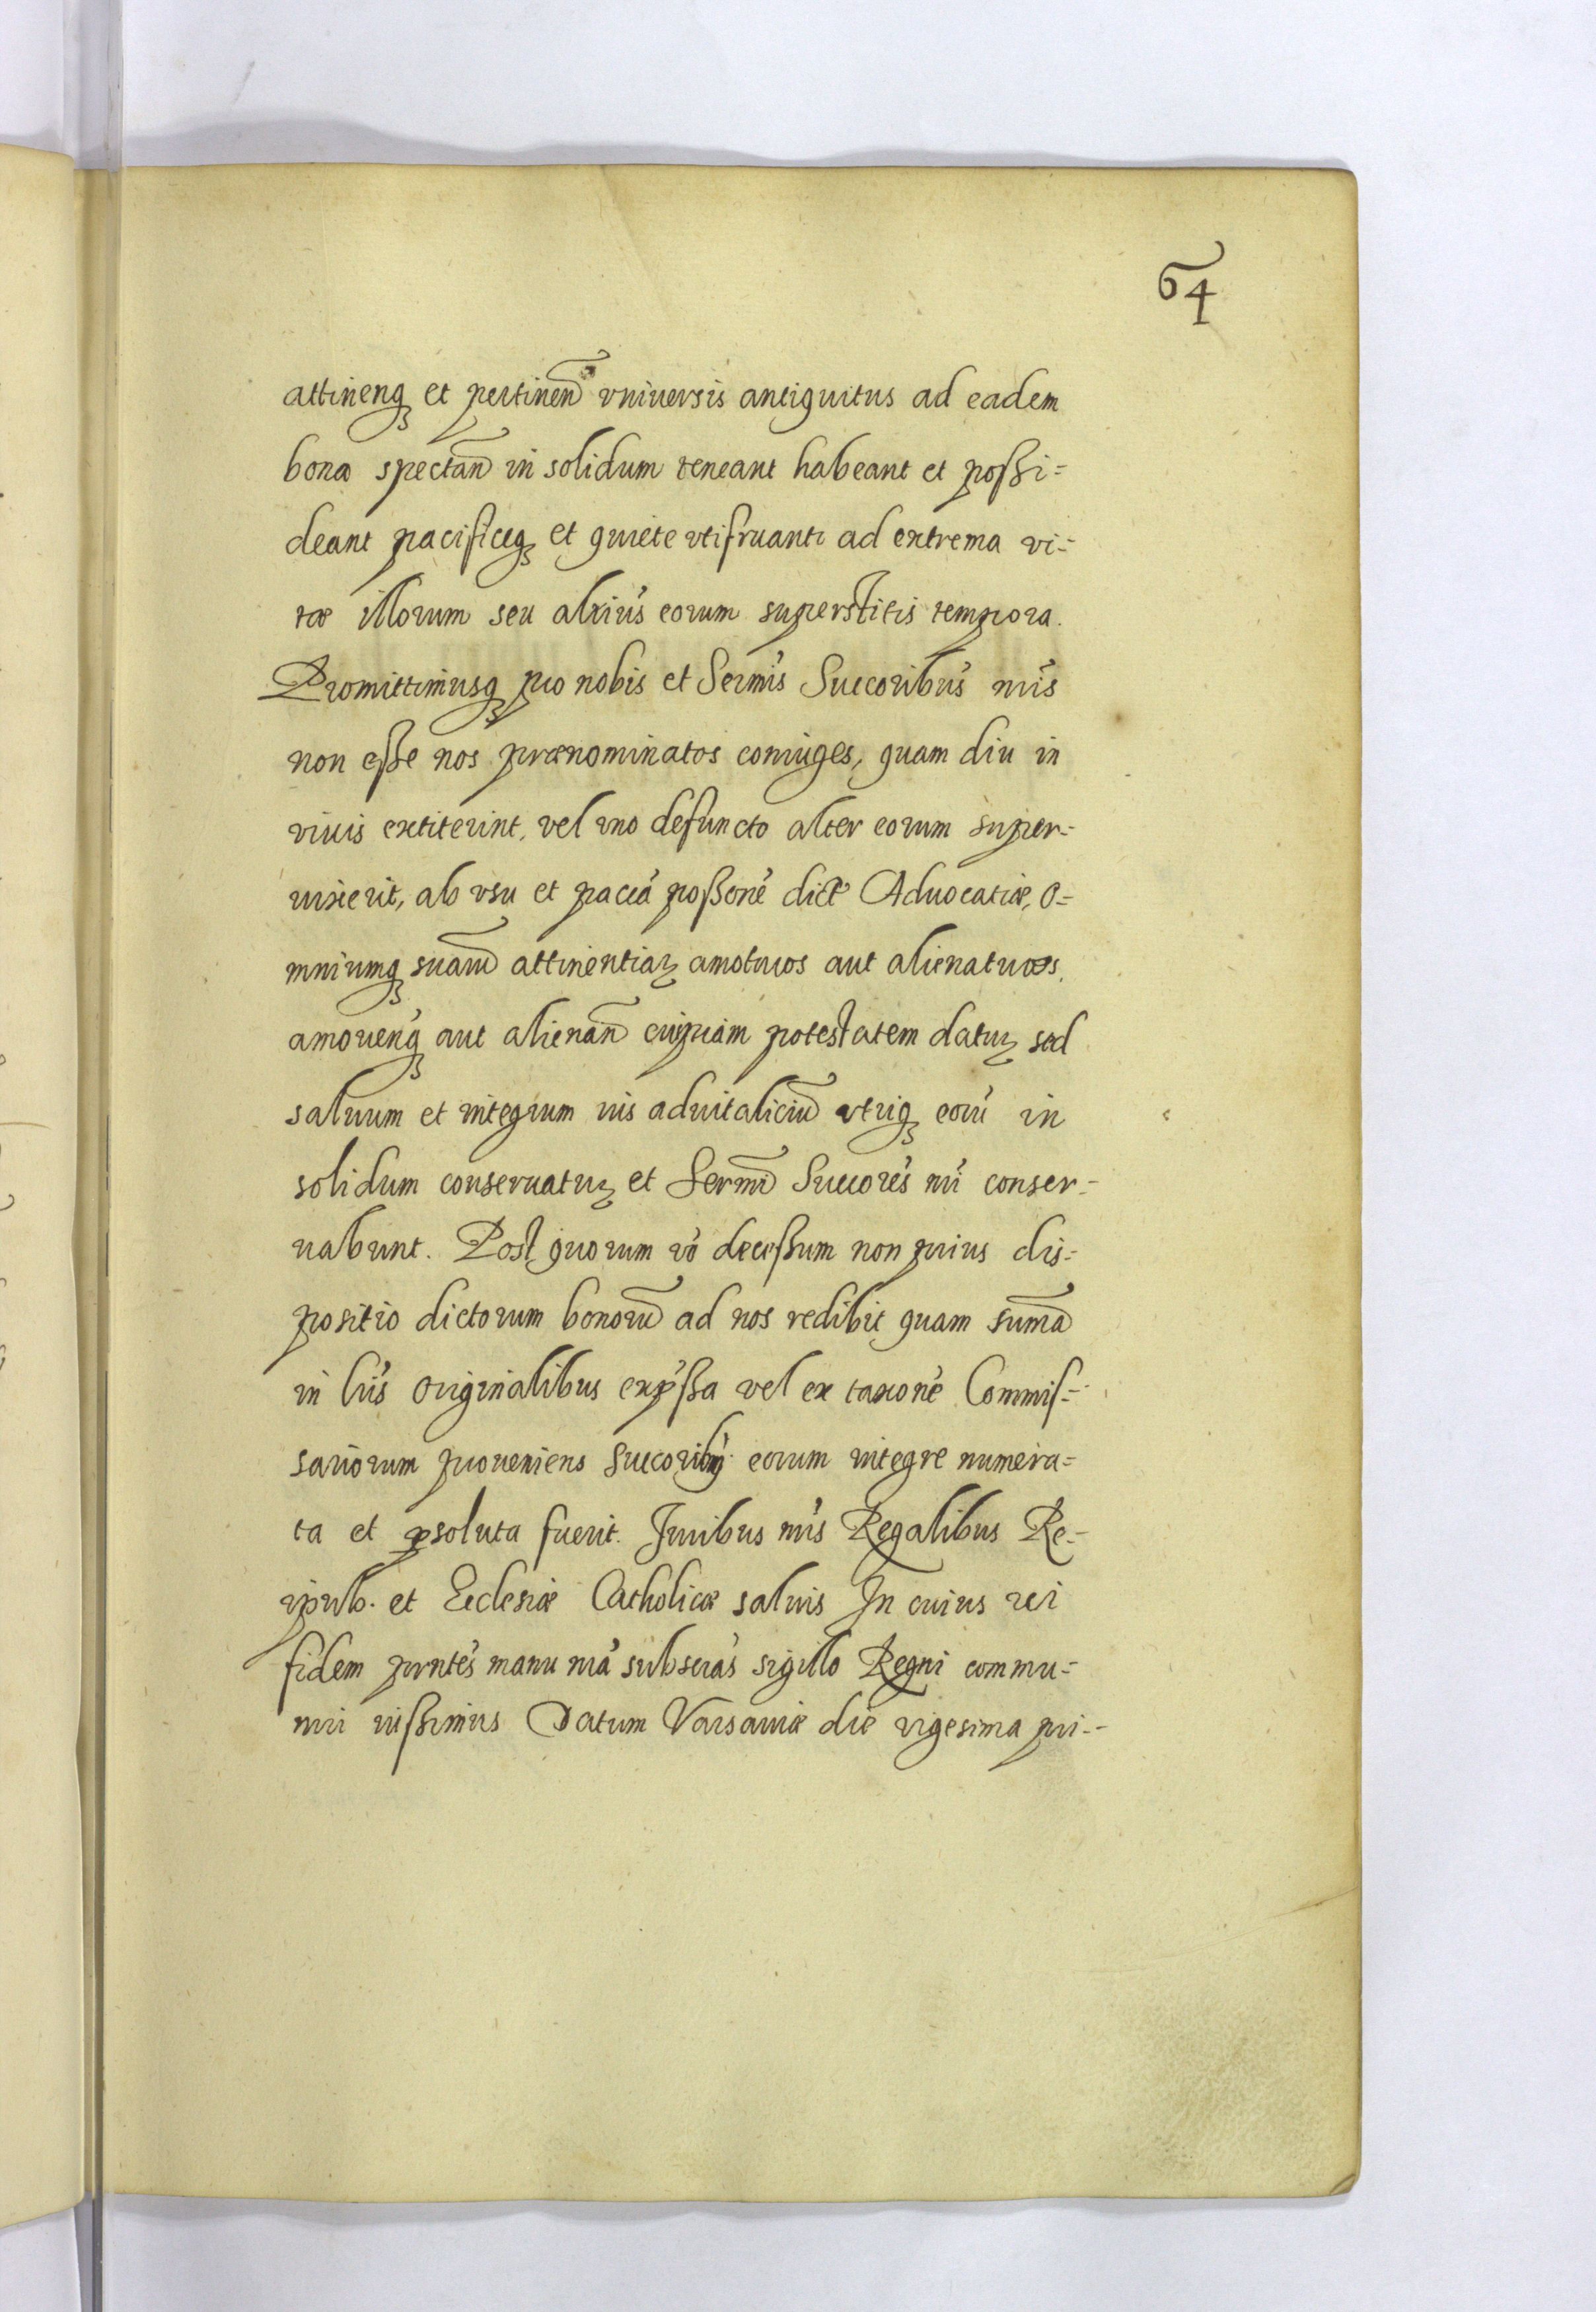 64
attinenq₃ et pertinen̄ vniuersis antiquitus ad eadem
bona spectan̄ in solidum teneant habeant et poſsi=
deant pacificeq₃ et quiete vtifruantr ad extrema vi=
tæ illorum seu altrius eorum superstitis tempora.
Promittimusq₃ pro nobis et Sermis Succoribus nris
non eſse nos prænominatos coniuges, quam diu in
viuis extiterint, vel vno defuncto alter eorum super=
uixerit, ab vsu et paccā poßone dictæ Aduocatiæ, o=
mniumq₃ suarū attinentiaꝝ amoturos aut alienaturos,
amouenq₃ aut alienan̄ cuipiam potestatem datuꝝ sed
saluum et integrum ius aduitaliciū vtriq₃ eorū in
solidum conseruatuꝝ et Sermi Succores nri conser=
uabunt. Post quorum vo deceſsum non prius dis=
positio dictorum bonorū ad nos redibit quam sum̄a
in lris originalibus exprßa vel ex taxone Commiſ=
sariorum proueniens succoribus eorum integre numera=
ta et ꝑsoluta fuerit. Iuribus nris Regalibus Re=
ipub. et Ecclesiæ Catholicæ saluis In cuius rei
fidem prntes manu nra subscras sigillo Regni commu=
niri iuſsimus Datum Varsauiæ die vigesima pri=